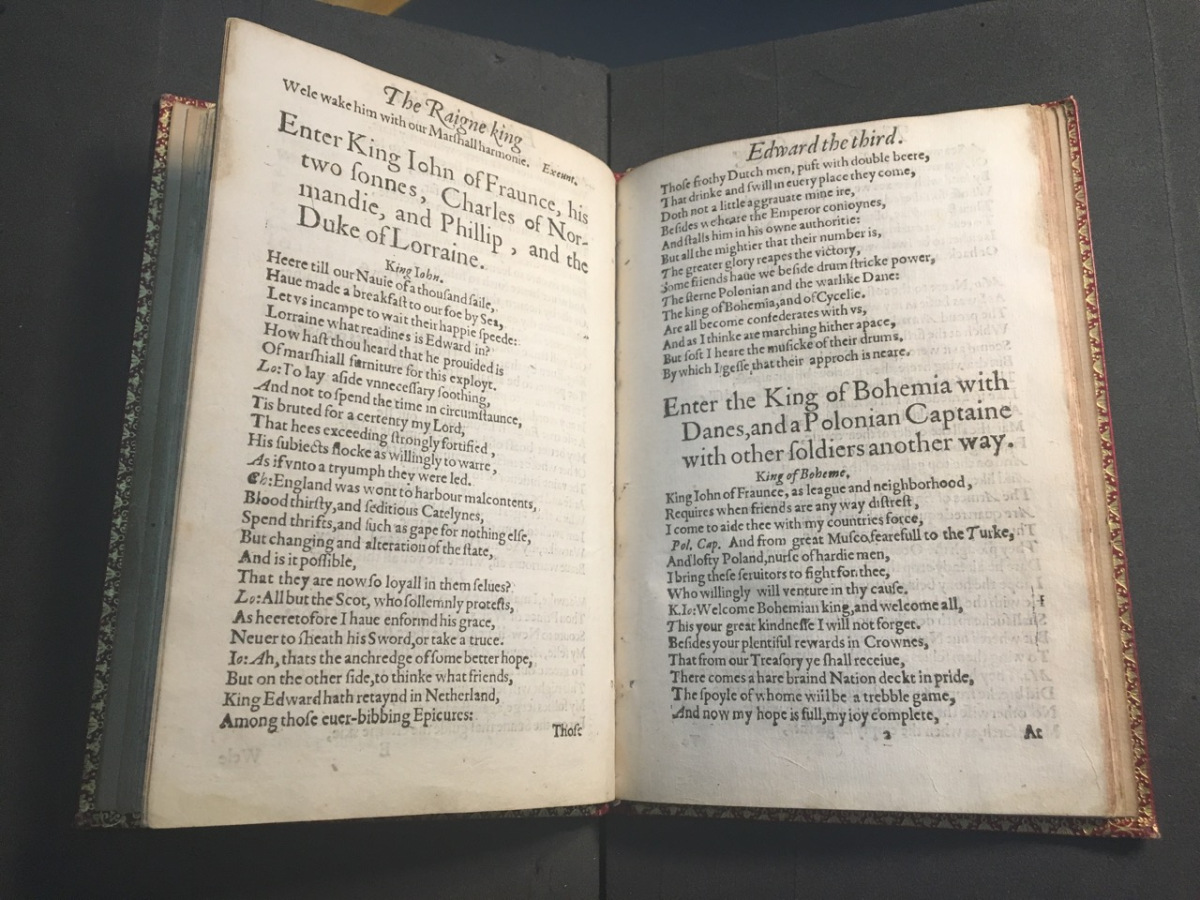 The Raigne king
Wele wake him with our Marſhall harmonie. Exeunt.
Enter King Iohn of Fraunce, his
two ſonnes, Charles of Nor-
mandie, and Phillip , and the
Duke of Lorraine.
King Iohn.
Heere till our Nauie of a thouſand ſaile,
Haue made a breakfaſt to our foe by Sea,
Let vs incampe to wait their happie ſpeede:
Lorraine what readines is Edward in?
How haſt thou heard that he prouided is
Of marſhiall furniture for this exployt.
Lo:To lay aſide vnneceſſary ſoothing,
And not to ſpend the time in circumſtaunce,
Tis bruted for a certenty my Lord,
That hees exceeding ſtrongly fortified ,
His ſubiects flocke as willingly to warre,
As if vnto a tryumph they were led.
Ch:England was wont to harbour malcontents,
Blood thirſty,and ſeditious Catelynes,
Spend thrifts,and ſuch as gape for nothing elſe,
But changing and alteration of the ſtate,
And is it poſſible,
That they are now ſo loyall in them ſelues?
Lo:All but the Scot, who ſollemnly proteſts,
As heeretofore I haue enformd his grace,
Neuer to ſheath his Sword,or take a truce.
Io:Ah, thats the anchredge of ſome better hope,
But on the other ſide,to thinke what friends,
King Edward hath retaynd in Netherland,
Among thoſe euer-bibbing Epicures:
Thoſe
Edward the third.
Thoſe frothy Dutch men, puft with double beere,
That drinke and ſwill in euery place they come,
Doth not a little aggrauate mine ire,
Beſides we heare the Emperor conioynes,
And ſtalls him in his owne authoritie:
But all the mightier that their number is,
The greater glory reapes the victory,
Some friends haue we beſide drum ſtricke power,
The ſterne Polonian and the warlike Dane:
The king of Bohemia,and of Cycelie.
Are all become confederates with vs,
And as I thinke are marching hither apace,
But ſoft I heare the muſicke of their drums,
By which I geſſe,that their approch is neare.
Enter the King of Bohemia with
Danes,and a Polonian Captaine
with other ſoldiers another way.
King of Boheme.
King Iohn of Fraunce, as league and neighborhood,
Requires when friends are any way diſtreſt,
I come to aide thee with my countries force,
Pol. Cap. And from great Muſco,fearefull to the Turke,
And lofty Poland,nurſe of hardie men,
I bring theſe ſeruitors to fight for thee,
Who willingly will venture in thy cauſe.
K.Io:Welcome Bohemian king,and welcome all,
This your great kindneſſe I will not forget.
Beſides your plentiful rewards in Crownes,
That from our Treaſory ye ſhall receiue,
There comes a hare braind Nation deckt in pride,
The ſpoyle of whome wiil be a trebble game,
And now my hope is full,my ioy complete,
2
At